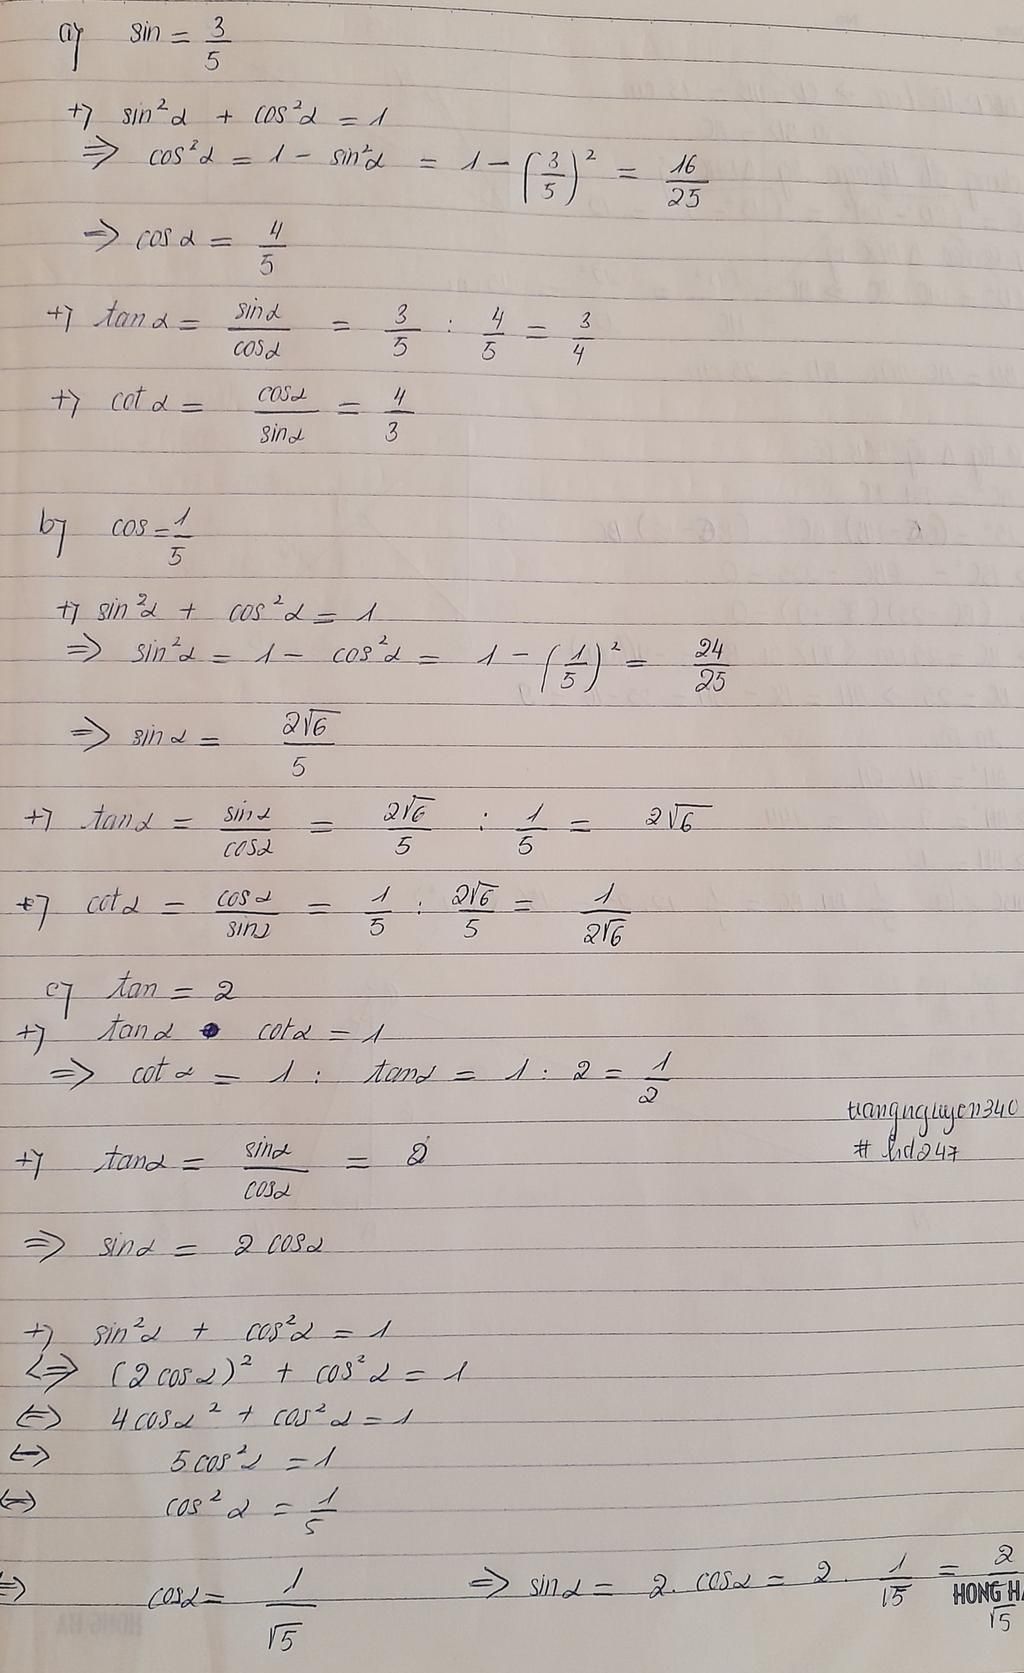 a) sin = 3/5
+) sin²α + cos²α = 1
=> cos²α = 1 - sin²α = 1 - (3/5)² = 16/25
=> cosα = 4/5
+) tanα = sinα/cosα = 3/5 : 4/5 = 3/4
+) cotα = cosα/sinα = 4/3
b) cos = 1/5
+) sin²α + cos²α = 1
=> sin²α = 1 - cos²α = 1 - (1/5)² = 24/25
=> sinα = 2√6/5
+) tanα = sinα/cosα = 2√6/5 : 1/5 = 2√6
+) cotα = cosα/sinα = 1/5 : 2√6/5 = 1/2√6
c) tan = 2
+) tanα • cotα = 1
=> cotα = 1 : tanα = 1 : 2 = 1/2
trangnguyen340
# hd247
+) tanα = sinα/cosα = 2
=> sinα = 2 cosα
+) sin²α + cos²α = 1
<=> (2 cosα)² + cos²α = 1
<=> 4 cosα² + cos²α = 1
<=> 5 cos²α = 1
<=> cos²α = 1/5
=> cosα = 1/√5 => sinα = 2. cosα = 2 . 1/√5 = 2/√5
HONG HA